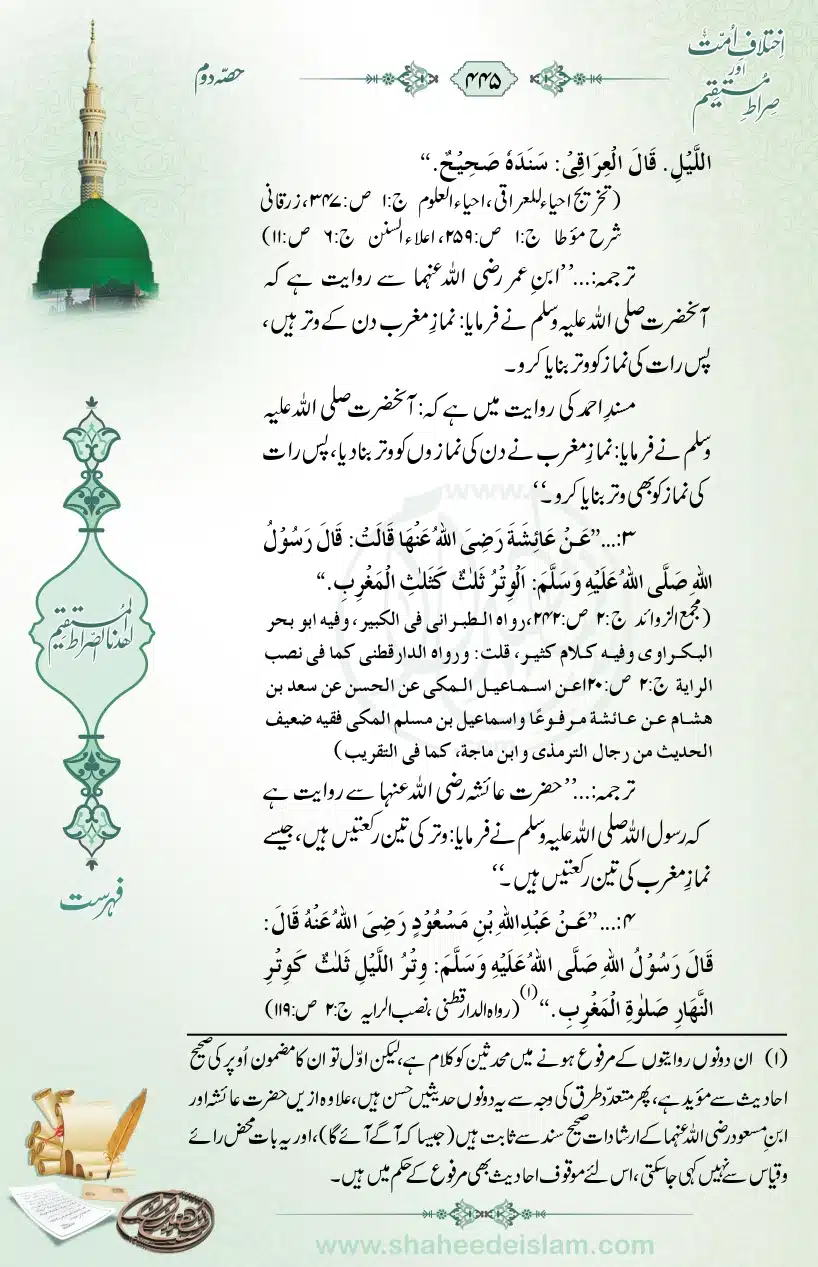 اِختلافِ اُمّت
اور
صِراطِ مُستقیم
۴۴۵
حصّہ دوم
اللَّیْلِ. قَالَ الْعِرَاقِیْ: سَنَدَهٗ صَحِیْحٌ.“
(تخریج احیاء للعراقی، احیاء العلوم ج:۱ ص:۳۴۷، زرقانی
شرح مؤطا ج:۱ ص:۲۵۹، اعلاء السنن ج:۶ ص:۱۱)
ترجمہ:...’’ابنِ عمر رضی اللہ عنہما سے روایت ہے کہ
آنحضرت صلی اللہ علیہ وسلم نے فرمایا: نمازِ مغرب دن کے وتر ہیں،
پس رات کی نماز کو وتر بنایا کرو۔
مسندِ احمد کی روایت میں ہے کہ: آنحضرت صلی اللہ علیہ
وسلم نے فرمایا: نمازِ مغرب نے دن کی نمازوں کو وتر بنادیا، پس رات
کی نماز کو بھی وتر بنایا کرو۔‘‘
۳:...”عَـنْ عَائِشَةَ رَضِیَ اللهُ عَنْهَا قَالَتْ: قَالَ رَسُوْلُ
اللهِ صَلَّی اللهُ عَلَیْهِ وَسَلَّمَ: اَلْوِتْرُ ثَلٰثٌ کَثَلٰثِ الْمَغْرِبِ.“
(مجمع الزوائد ج:۲ ص:۲۴۲، رواہ الطبرانی فی الکبیر، وفیہ ابو بحر
البکراوی وفیہ کلام کثیر، قلت: ورواہ الدارقطنی کما فی نصب
الرایة ج:۲ ص:۱۲۰عن اسماعیل المکی عن الحسن عن سعد بن
ھشام عن عائشة مرفوعًا واسماعیل بن مسلم المکی فقیہ ضعیف
الحدیث من رجال الترمذی وابن ماجة، کما فی التقریب)
ترجمہ:...’’حضرت عائشہ رضی اللہ عنہا سے روایت ہے
کہ رسول اللہ صلی اللہ علیہ وسلم نے فرمایا: وتر کی تین رکعتیں ہیں، جیسے
نمازِ مغرب کی تین رکعتیں ہیں۔‘‘
۴:...”عَـنْ عَبْدِاللهِ بْنِ مَسْعُوْدٍ رَضِیَ اللهُ عَنْهُ قَالَ:
قَالَ رَسُوْلُ اللهِ صَلَّی اللهُ عَلَیْهِ وَسَلَّمَ: وِتْرُ اللَّیْلِ ثَلٰثٌ کَوِتْرِ
النَّهَارِ صَلٰوةِ الْمَغْرِبِ.“(۱) (رواہ الدارقطنی، نصب الرایہ ج:۲ ص:۱۱۹)
(۱) ان دونوں روایتوں کے مرفوع ہونے میں محدثین کو کلام ہے، لیکن اوّل تو ان کا مضمون اُوپر کی صحیح
احادیث سے مؤید ہے، پھر متعدّد طرق کی وجہ سے یہ دونوں حدیثیں حسن ہیں، علاوہ ازیں حضرت عائشہ اور
ابنِ مسعود رضی اللہ عنہما کے ارشادات صحیح سند سے ثابت ہیں (جیسا کہ آگے آئے گا)، اور یہ بات محض رائے
وقیاس سے نہیں کہی جاسکتی، اس لئے موقوف احادیث بھی مرفوع کے حکم میں ہیں۔
اهدنا الصّراط المُستقیم
فہرست
www.shaheedeislam.com